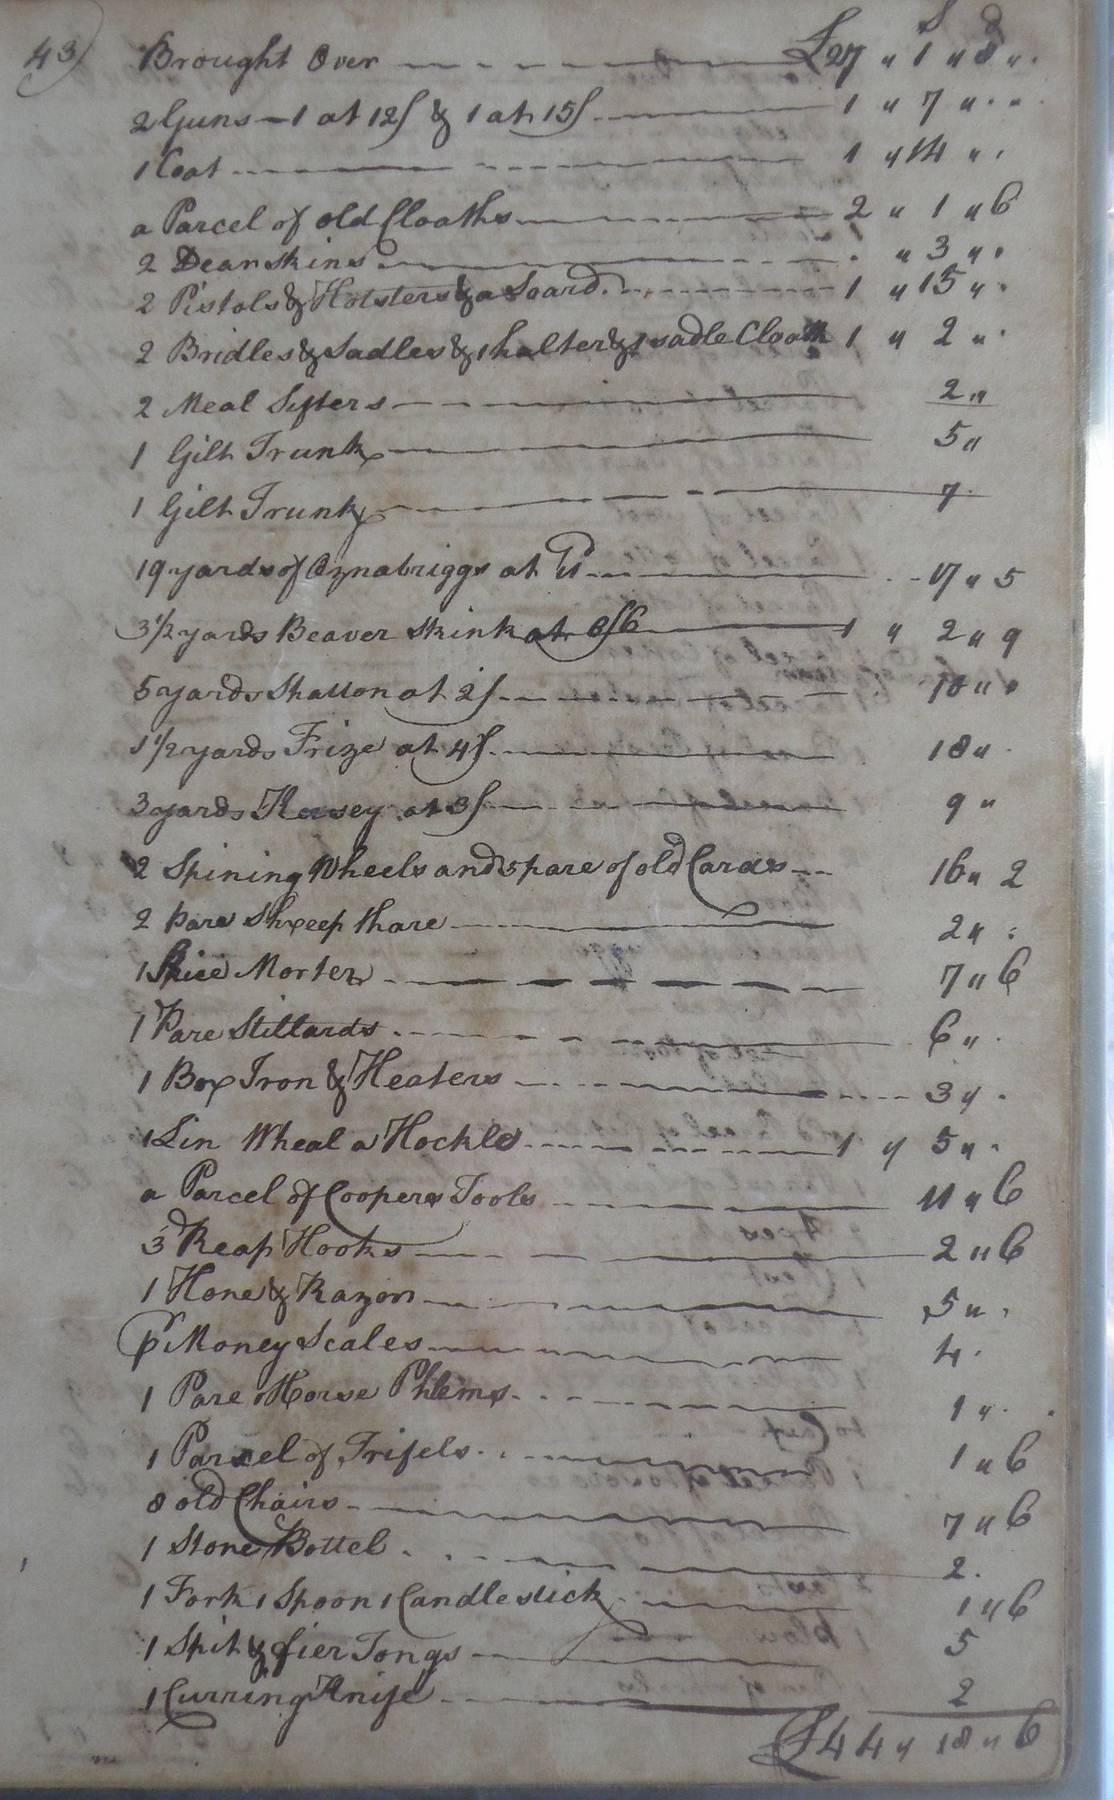 43) Brought Over £27 " 1 " 8 "
2 Guns - 1 at 12s & 1 at 15s 1 " 7 "
1 Coat 1 " 14 "
a Parcel of old Cloaths 2 " 1 " 6
2 Dearskins " 3 "
2 Pistols & Holsters & a Soard 1 " 15 "
2 Bridles & Sadles & 1 halter & 1 sadle Cloath 1 " 2 "
2 Meal Sifters 2 "
1 Gilt Trunk 5 "
1 Gilt Trunk 7
19 yards of Oznabriggs at 17 " 5
3 1/2 yards Beaver Skink at 6/6 1 " 2 " 9
5 yards Shalton at 2s 10 "
1/2 yards Frize at 4s 18 "
3 yards Kersey at 3s 9 "
2 Spining Wheels and 5 pare of old Cards 16 " 2
2 pare Sheep Share 2 "
1 Spice Morter 7 " 6
1 Pare Stillards 6 "
1 Box Iron & Heaters 3 "
1 Lin Wheal a Hockle 1 " 5 "
a Parcel of Coopers Tools 11 " 6
3 Reap Hooks 2 " 6
1 Hone & Razon 5 "
pr Money Scales 4
1 Pare Horse Phlems 1 "
1 Parcel of Trifels 1 " 6
8 old Chairs 7 " 6
1 Stone Bottel 2
1 Fork 1 Spoon 1 Candlestick 1 " 6
1 Spit & fier Tongs 5
1 Curring Knife 2
£44 " 18 " 6